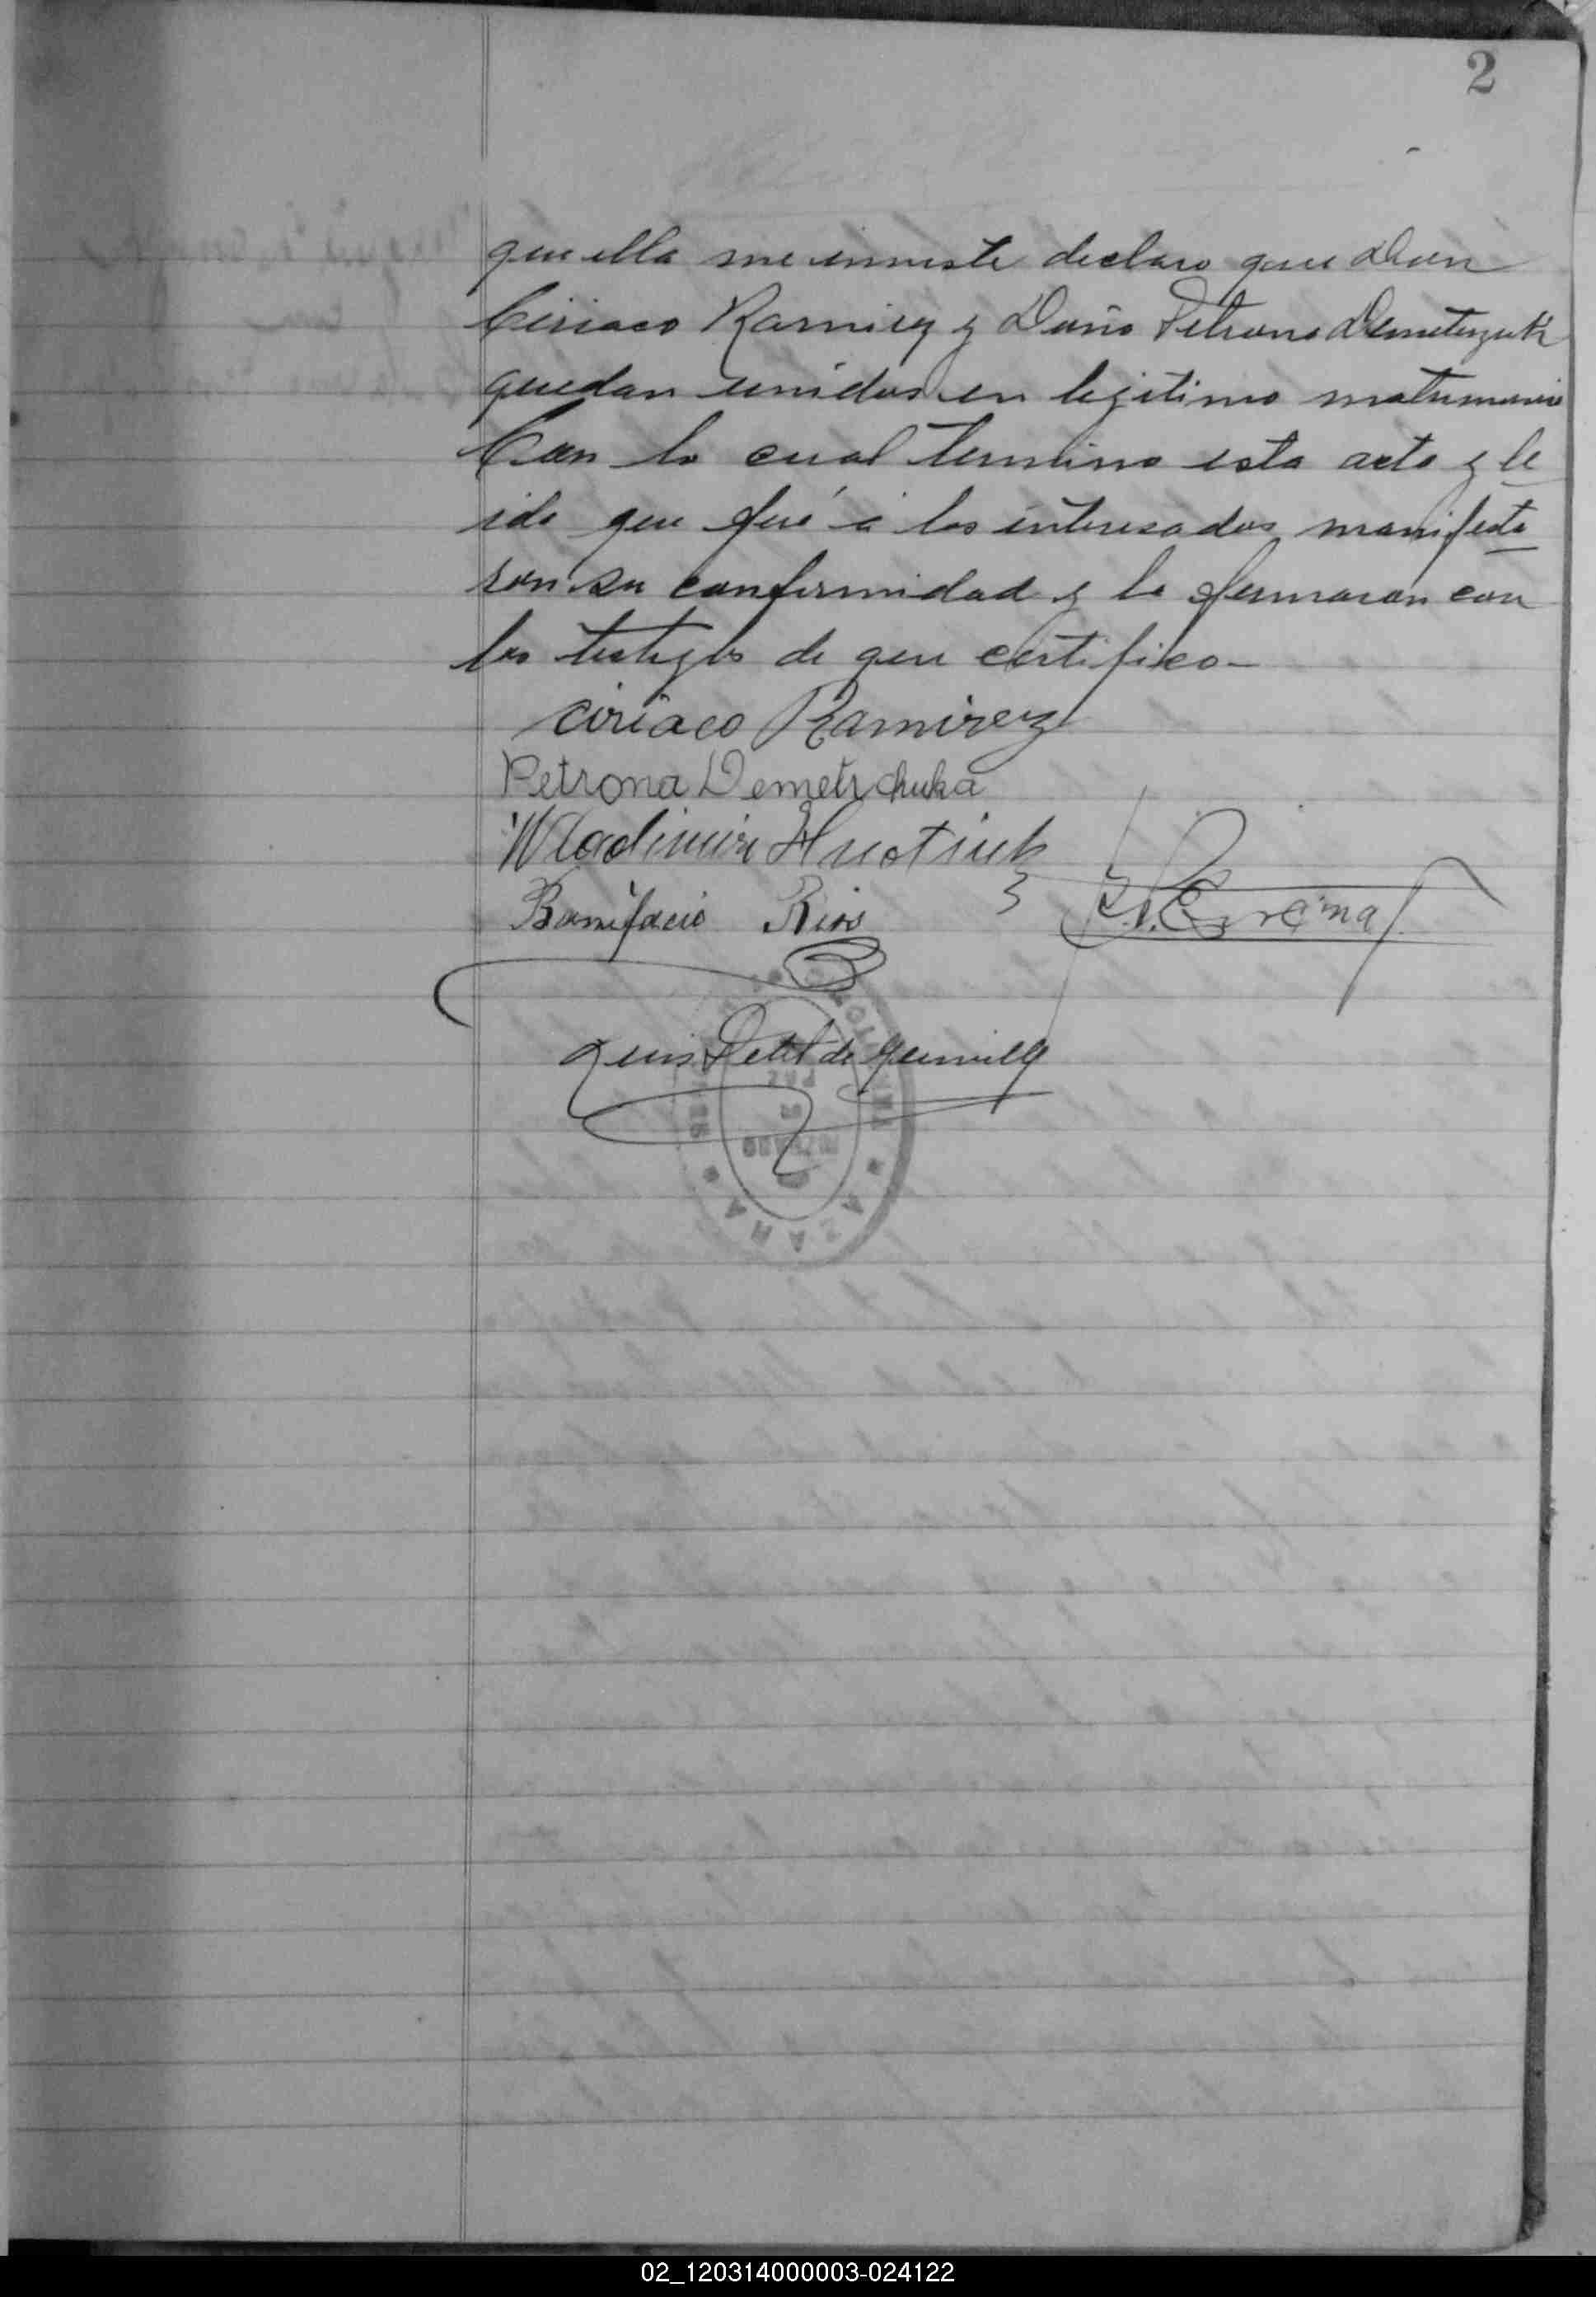 2
que ella me inviste declaro que Don
Ciriaco Ramirez y Doña Petrona Demeterzuk
quedan unidos en legitimo matrimonio
Con lo cual termino esta acta y le
ida que fué á los interesados manifesta
ron su conformidad y la firmaron con
los testigos de que certifico-
Ciriaco Ramirez
Petrona Demetrchuka
Wladimir
Bonifacio Rios
Luis Petit de
AZARA
02_120314000003-024122